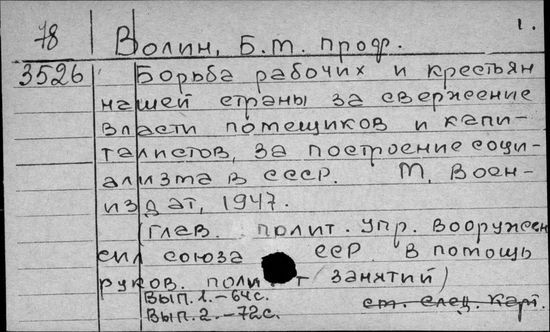 1.
78 Волин, Б.М. проф.
3526 Борьба рабочих и крестьян
нашей страны за свержение
власти помещиков и капи-
талистов, за построение соци-
ализма в СССР. М, Воен-
издат, 1947.
(Глав. полит. упр. вооружен
сил союза ССР. В помощь
руков. полит занятий)
Вып. 1.-64с.
Вып. 2.-72с. ст. спец. карт.